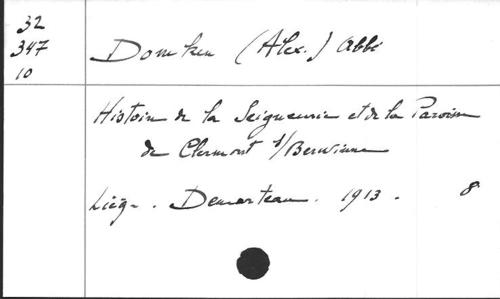 32
347
10
Domken (Alex.) Abbé
Histoire de la Seigneurie et de la Paroisse
de Clermont s/Berwinne
Liège. Demarteau. 1913. 8